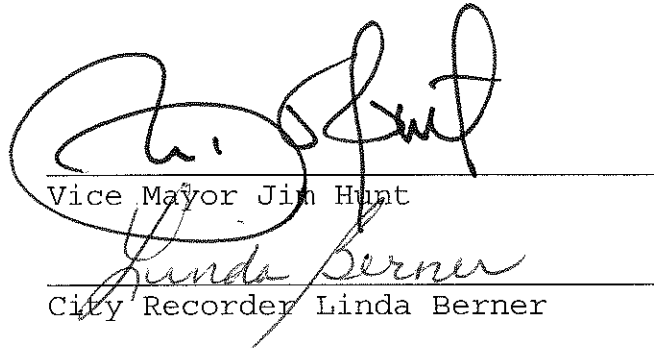 Vice Mayor Jim Hunt
Linda Berner
City Recorder Linda Berner